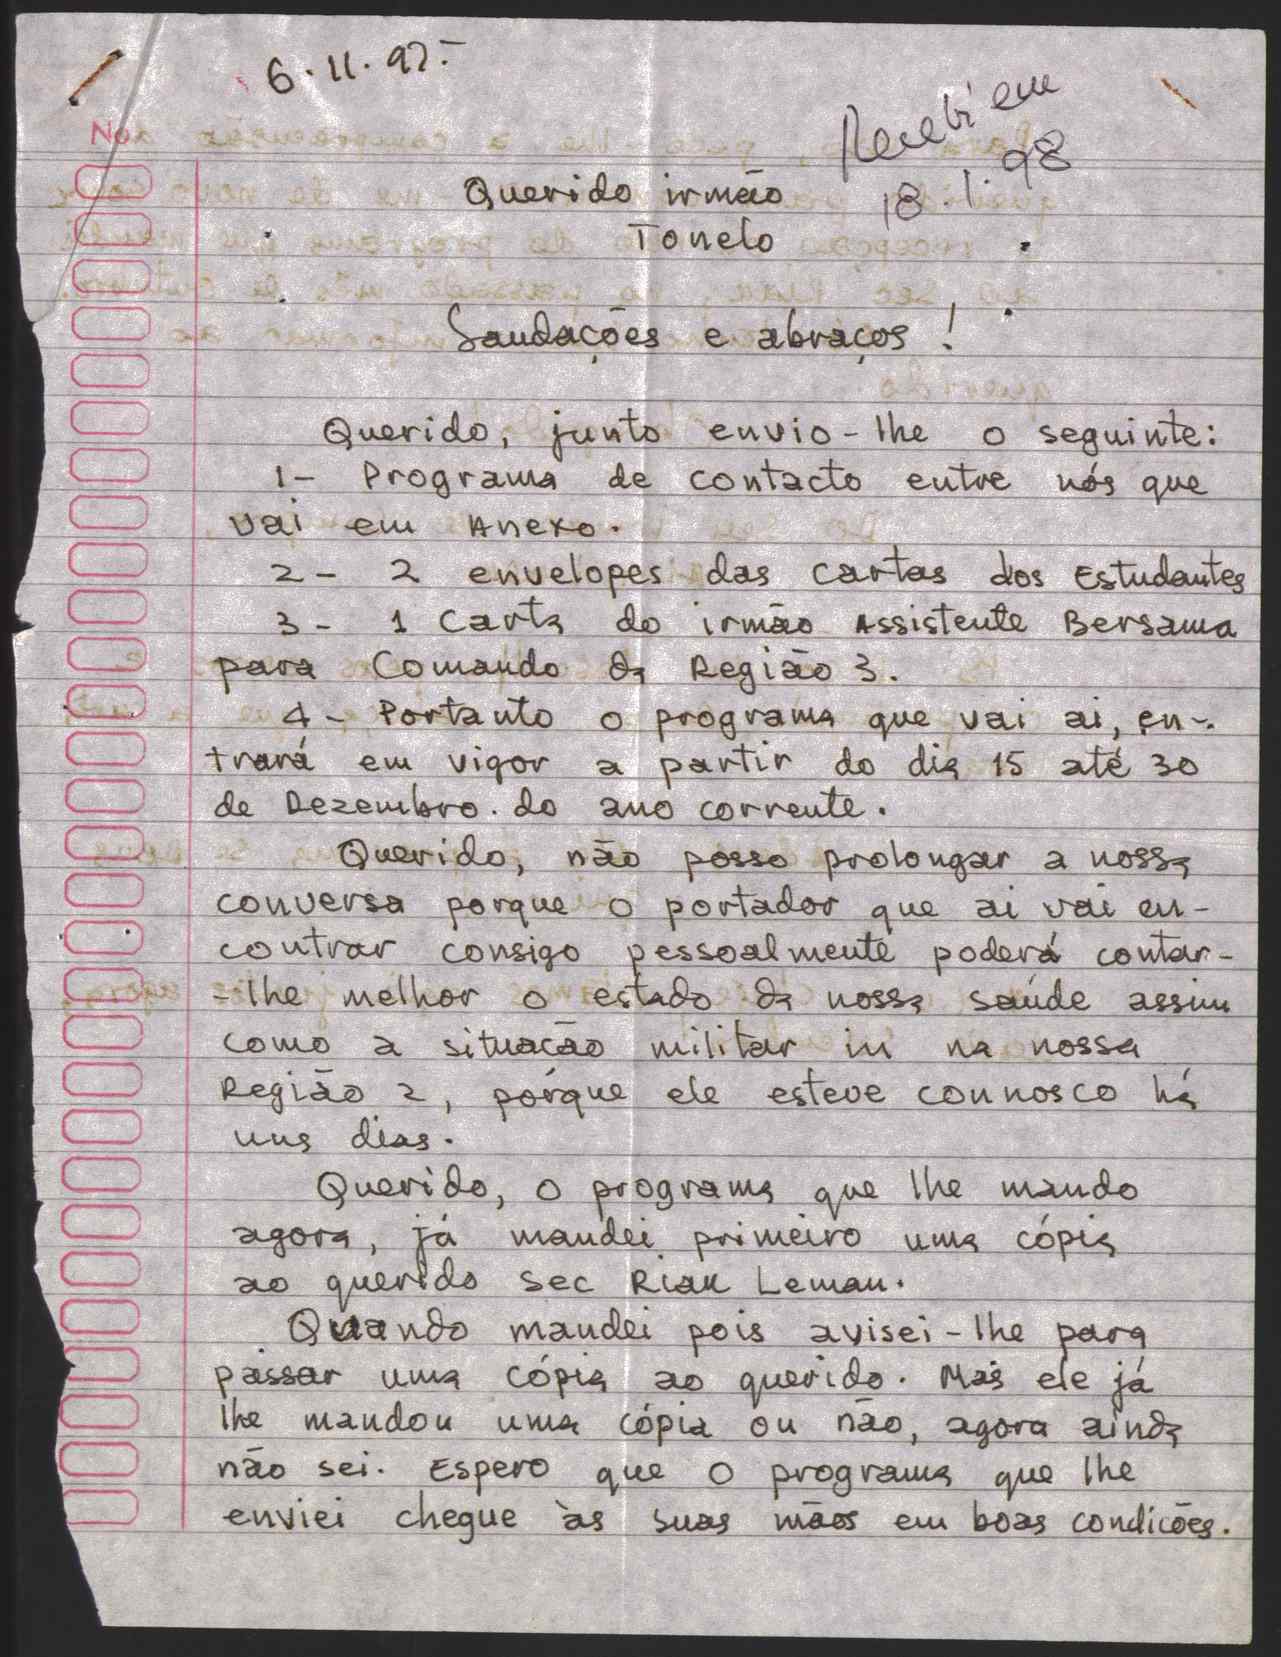 6.11.97.-
Recebi em
18.1.98
No
Querido irmão
Tonelo
Saudações e abraços!
Querido, junto envio-lhe o seguinte:
1- Programa de contacto entre nós que
vai em Anexo.
2- 2 envelopes das cartas dos Estudantes
3- 1 Carta do irmão Assistente Bersama
para Comando da Região 3.
4- Portanto o programa que vai ai, en-
trará em vigor a partir do dia 15 até 30
de Dezembro. do ano corrente.
Querido, não posso prolongar a nossa
conversa porque o portador que ai vai en-
contrar consigo pessoalmente poderá contar-
-lhe melhor o estado da nossa saúde assim
como a situacão militar in na nossa
Região 2, pórque ele esteve connosco há
uns dias.
Querido, o programa que lhe mando
agora, já mandei primeiro uma cópia
ao querido Sec Riak Leman.
Quando mandei pois avisei-lhe para
passar uma cópia ao querido. Mas ele já
lhe mandou uma cópia ou não, agora ainda
não sei. Espero que o programa que lhe
enviei chegue às suas mãos em boas condicões.